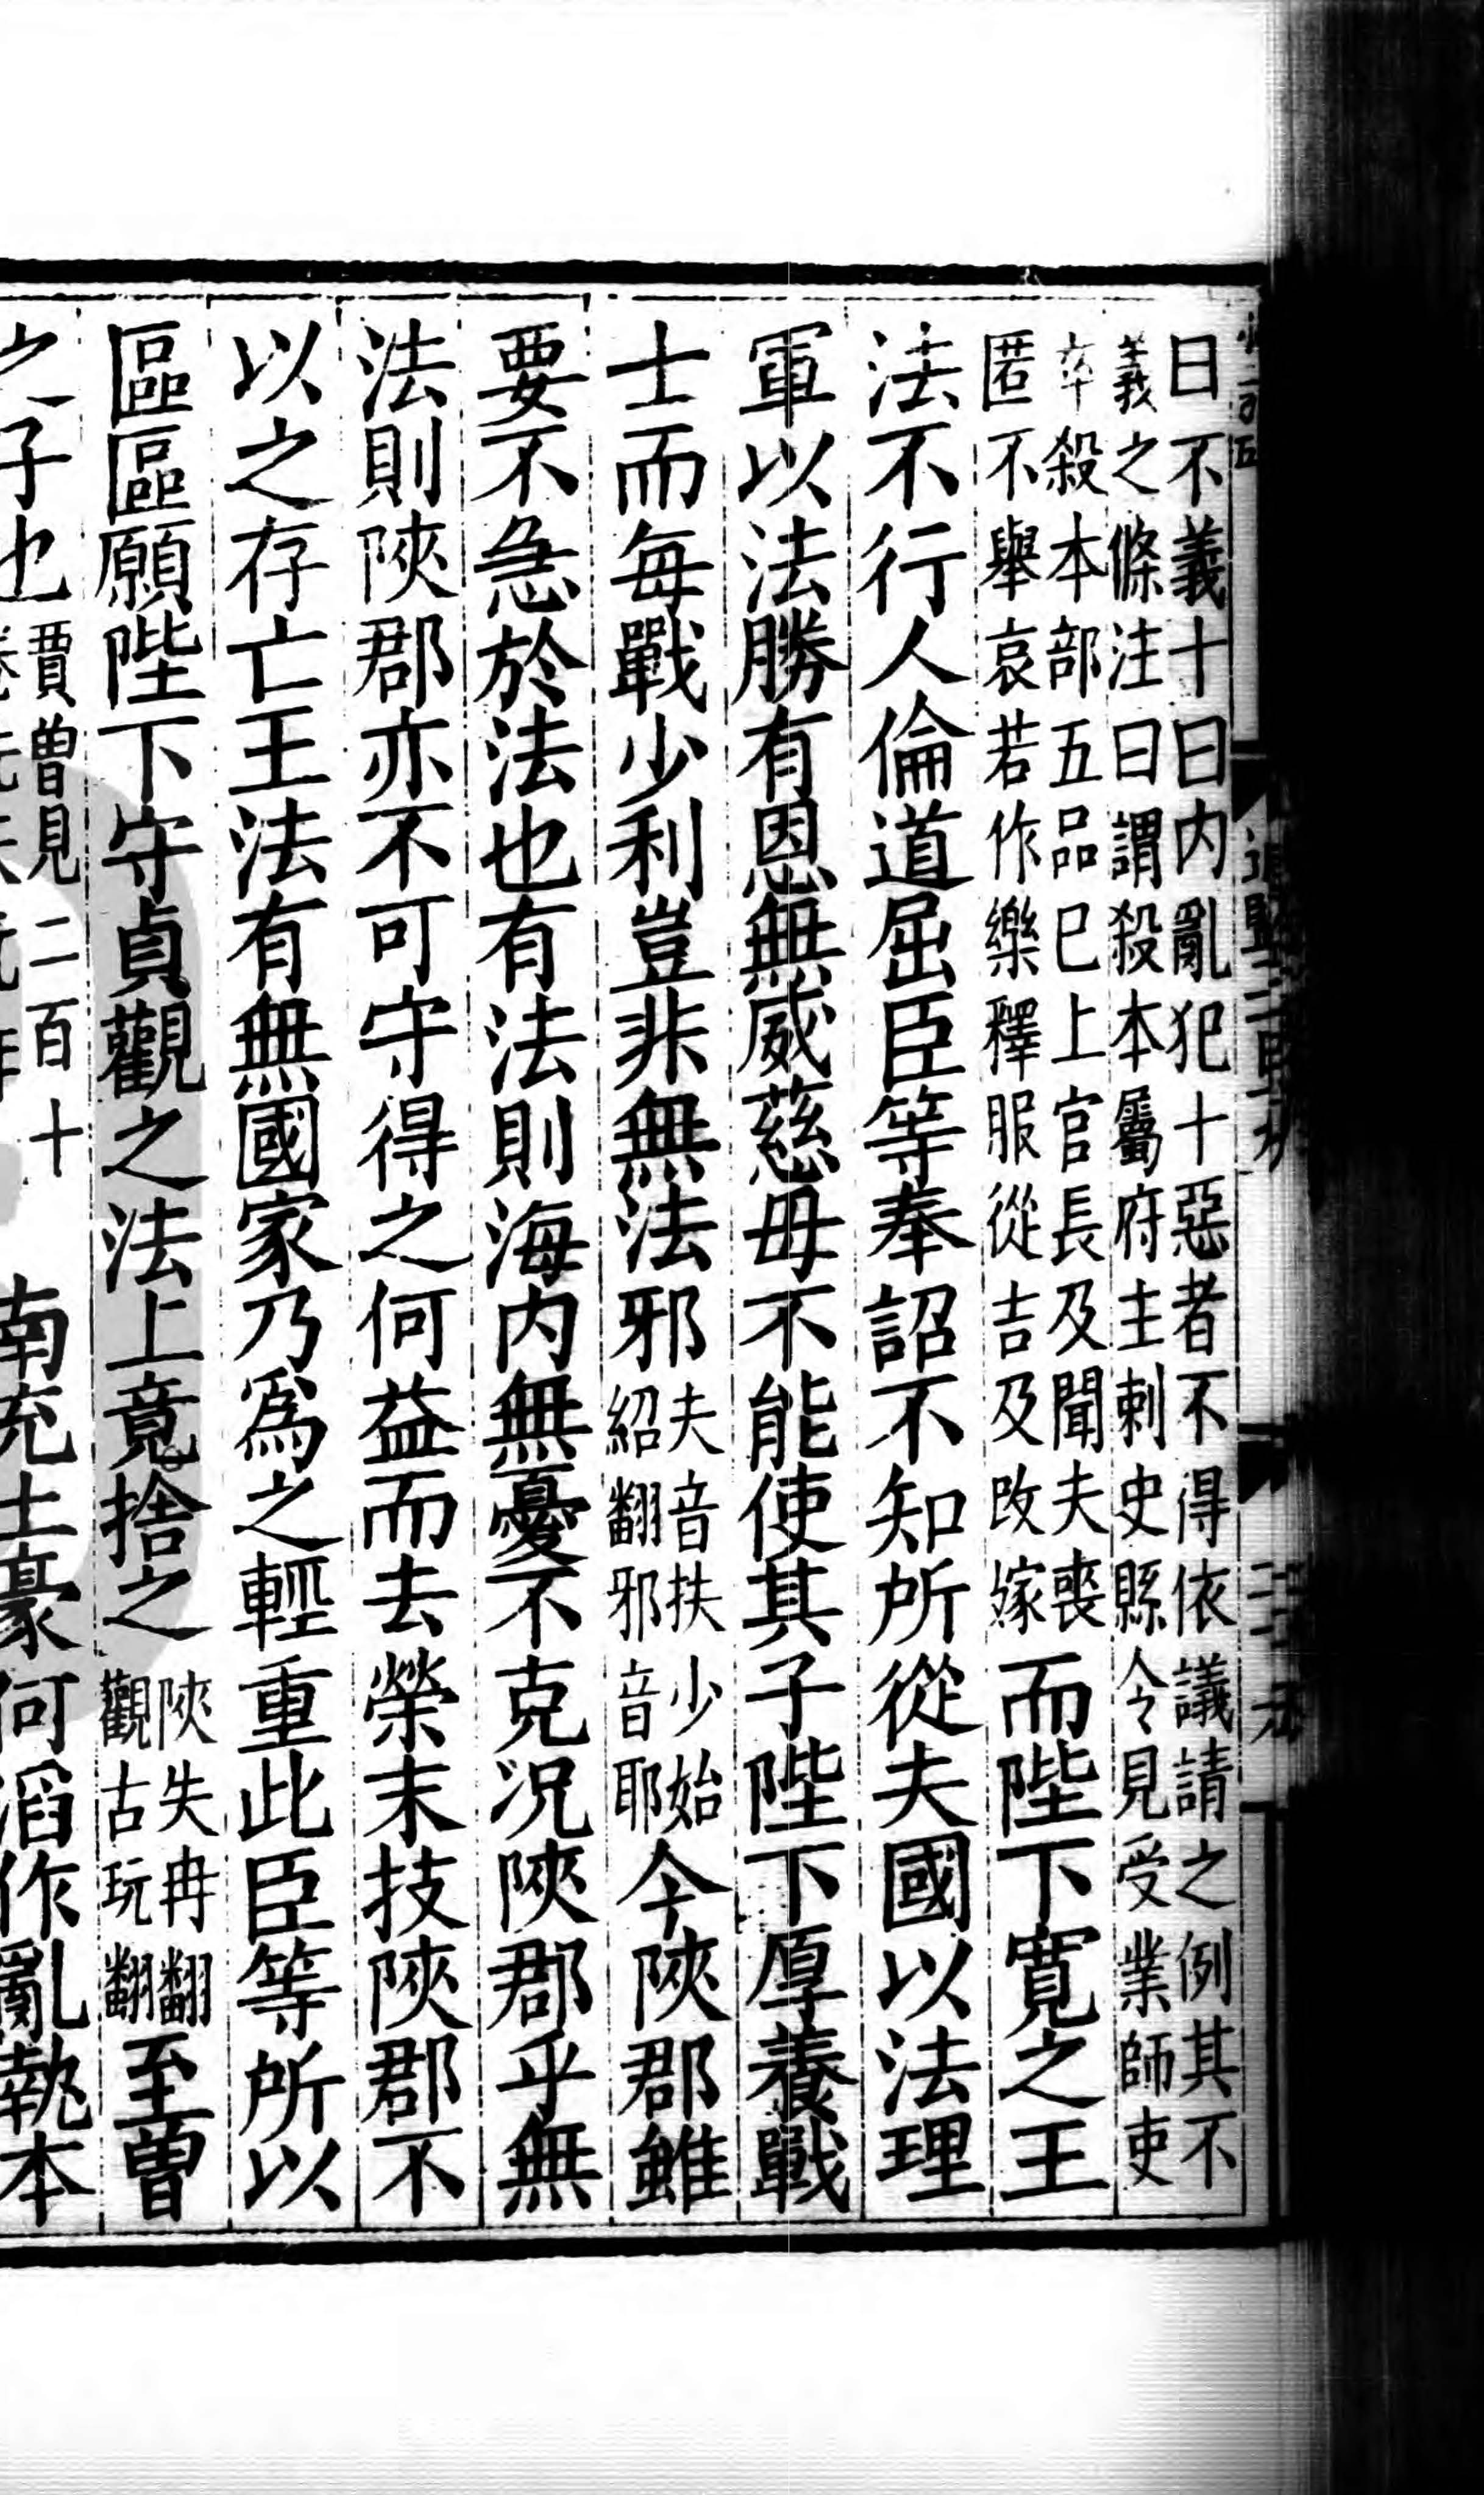 曰不義十曰内亂犯十惡者不得依議請之例其不
義之條注曰謂殺本屬府主刺史縣令見受業師吏
卒殺本部五品已上官長及聞夫喪
匿不舉哀若作樂釋服從吉及改嫁
而陛下寬之王
法不行人倫道屈臣等奉詔不知所從夫國以法理
軍以法勝有恩無威慈母不能使其子陛下厚養戰
士而每戰少利豈非無法邪
夫音扶少始
紹翻邪音耶
今陝郡雖
要不急於法也有法則海内無憂不克况陝郡乎無
法則陝郡亦不可守得之何益而去榮末技陝郡不
以之存亡王法有無國家乃爲之輕重此臣等所以
區區願陛下守貞觀之法上竟捨之
陝失冉翻
觀古玩翻
至曾
之子也
賈曾見二百十
南充土豪何滔作亂執本